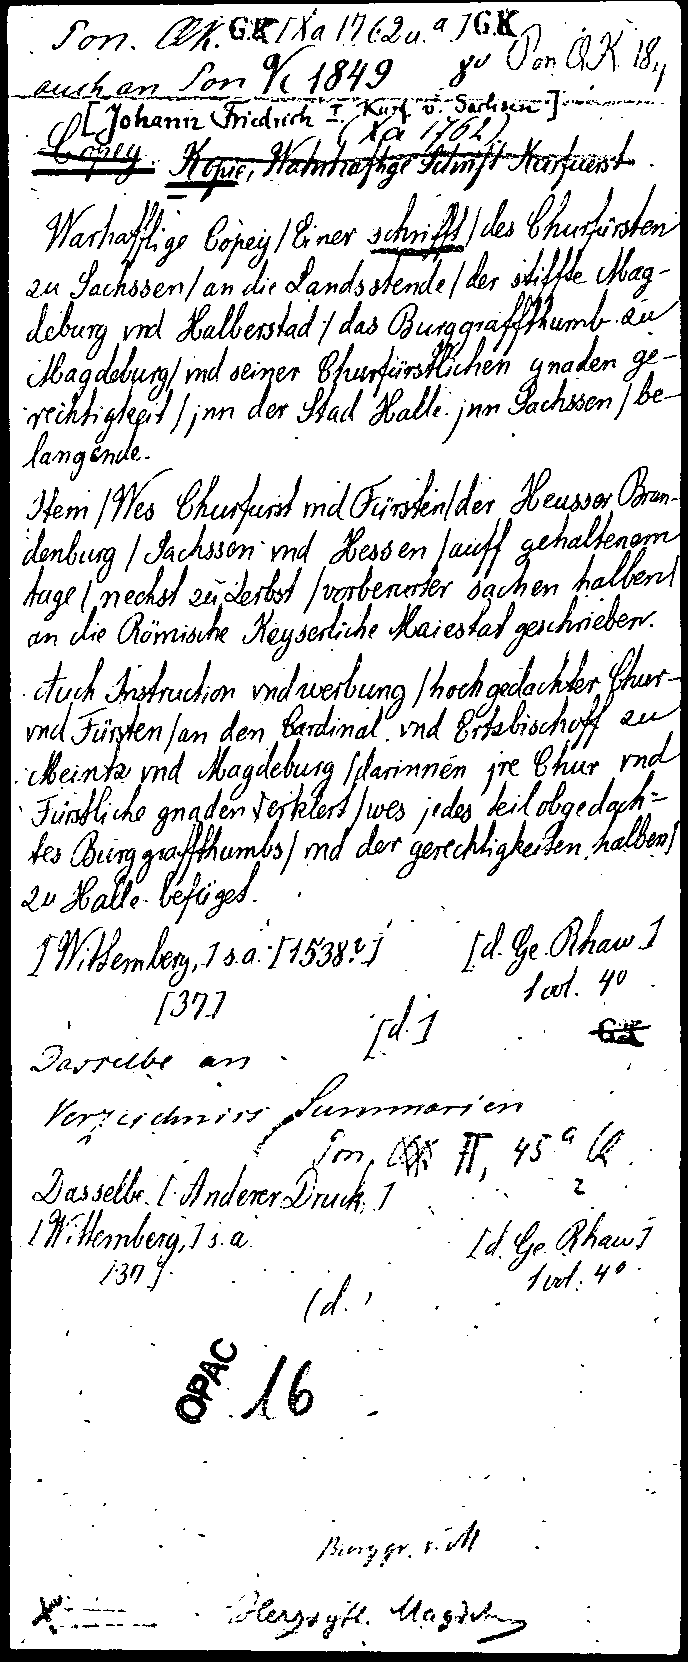 Pon. QK. GK [Xa 1762 u. a] GK
auch an Pon Vc 1849 zu Pon QK 18,,
[Johann Friedrich I. Kurf. v. Sachsen]
(Xa 1762)
Copey. Kopie, Wahrhaftige Schrift Kurfuerst
Warhafftige Copey / Einer schrifft / des Churfürsten
zu Sachssen / an die Landsstende / der stiffte Mag-
deburg vnd Halberstad / das Burggraffthumb zu
Magdeburg / vnd seiner Churfürstlichen gnaden ge-
rechtigkeit / jnn der Stad Halle jnn Sachssen / be-
langende.
Item / Wes Churfurst vnd Fürsten / der Heusser Bran-
denburg / Sachssen vnd Hessen / auff gehaltenem
tage / nechst zu Zerbst / vorberurter sachen halben /
an die Römische Keyserliche Maiestat geschrieben.
Auch Instruction vnd werbung / hochgedachter Chur-
vnd Fürsten / an den Cardinal vnd Ertzbischoff zu
Meintz vnd Magdeburg / darinnen jre Chur vnd
Fürstliche gnaden verklert / wes jedes teil obgedach-
tes Burggraffthumbs / vnd der gerechtigkeiten halben /
zu Halle befüget.
[Wittemberg,] s.a. [1538?] [d. Ge. Rhaw]
[37] 1 vol. 4°
[d.] GK
Dasselbe an
Verzeichniss Summarien
Pon. II, 45 a
2
Dasselbe. [Anderer Druck.]
[Wittemberg,] s.a. [d. Ge. Rhaw]
[37]. 1 vol. 4°
(d.)
OPAC 16
Burggr. v. M
Magdeb